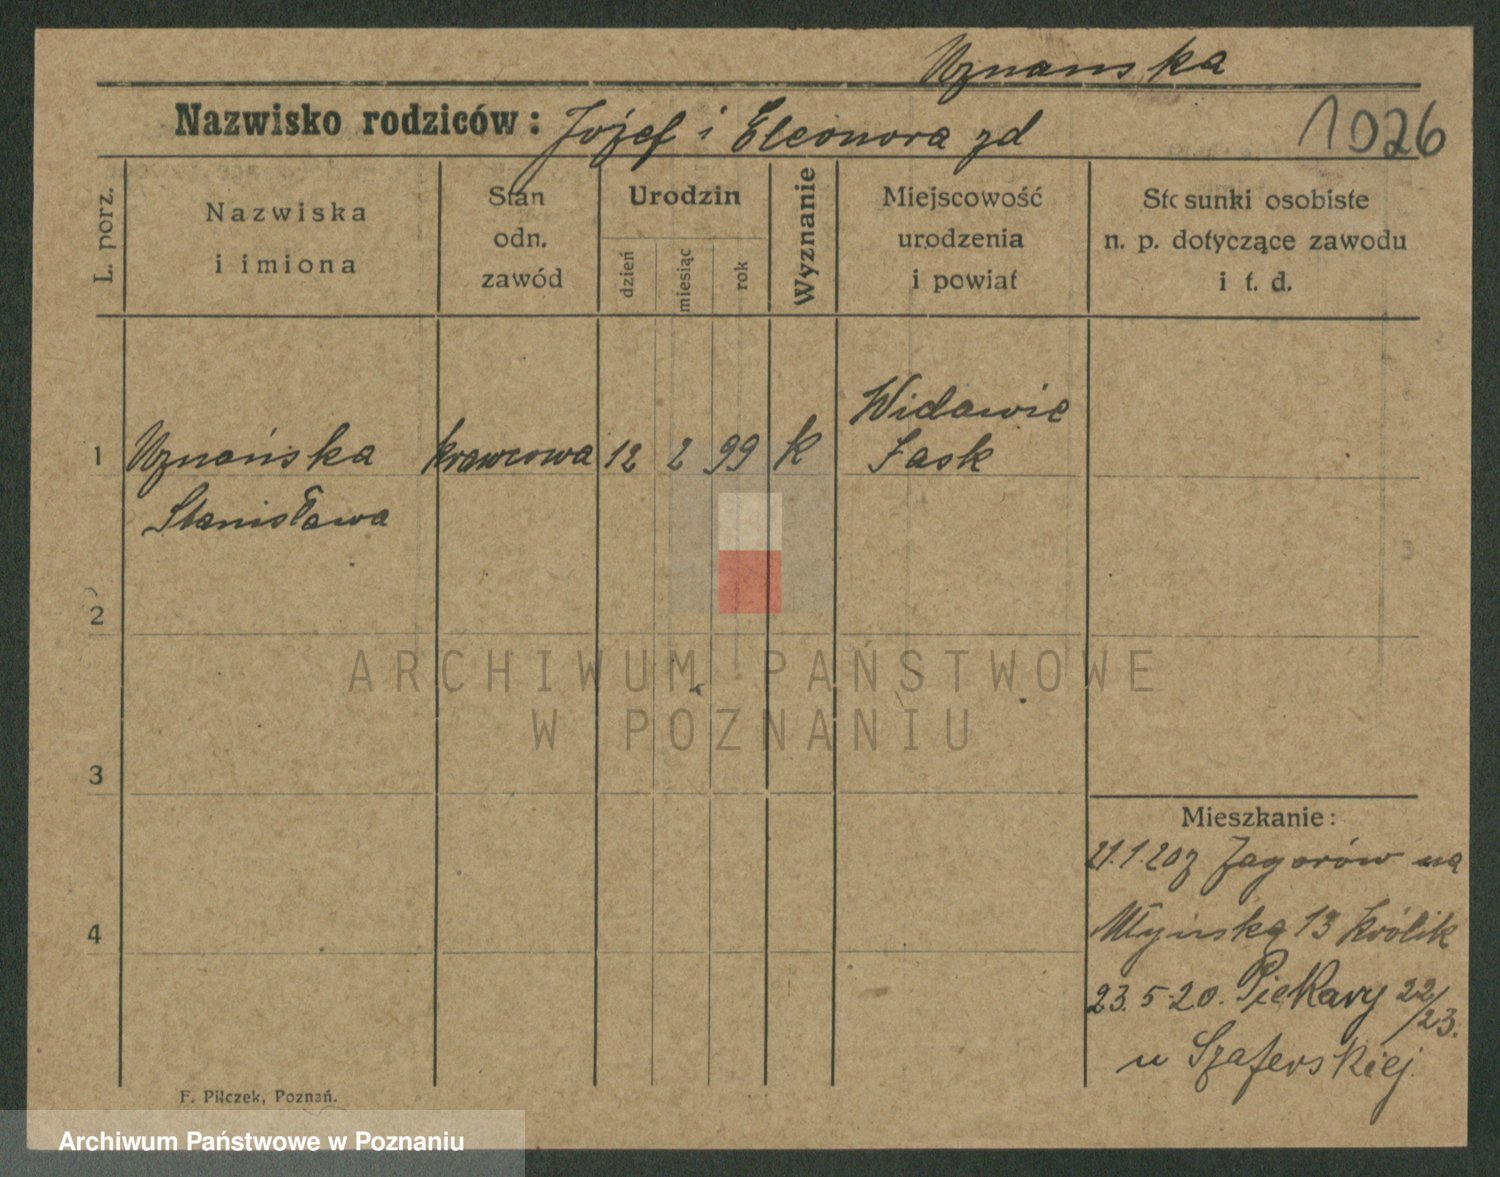 Uznanska
Nazwisko rodziców: Józef i Eleonora zd
1026
L. porz.
Nazwiska
i imiona
Stan
odn.
zawód
Urodzin
dzień
miesiąc
rok
Wyznanie
Miejscowość
urodzenia
i powiat
Stosunki osobiste
n. p. dotyczące zawodu
i t. d.
Widawie
1 Uznańska krawcowa 12 2 99 k Łask
Stanisława
2
ARCHIWUM PAŃSTWOWE
W POZNANIU
3
Mieszkanie:
21.1.20 z Zagorów na
4
Młyńską 13 Królik
23.5.20. Piekary 22/23.
u Szaferskiej
F. Pilczek, Poznań.
Archiwum Państwowe w Poznaniu